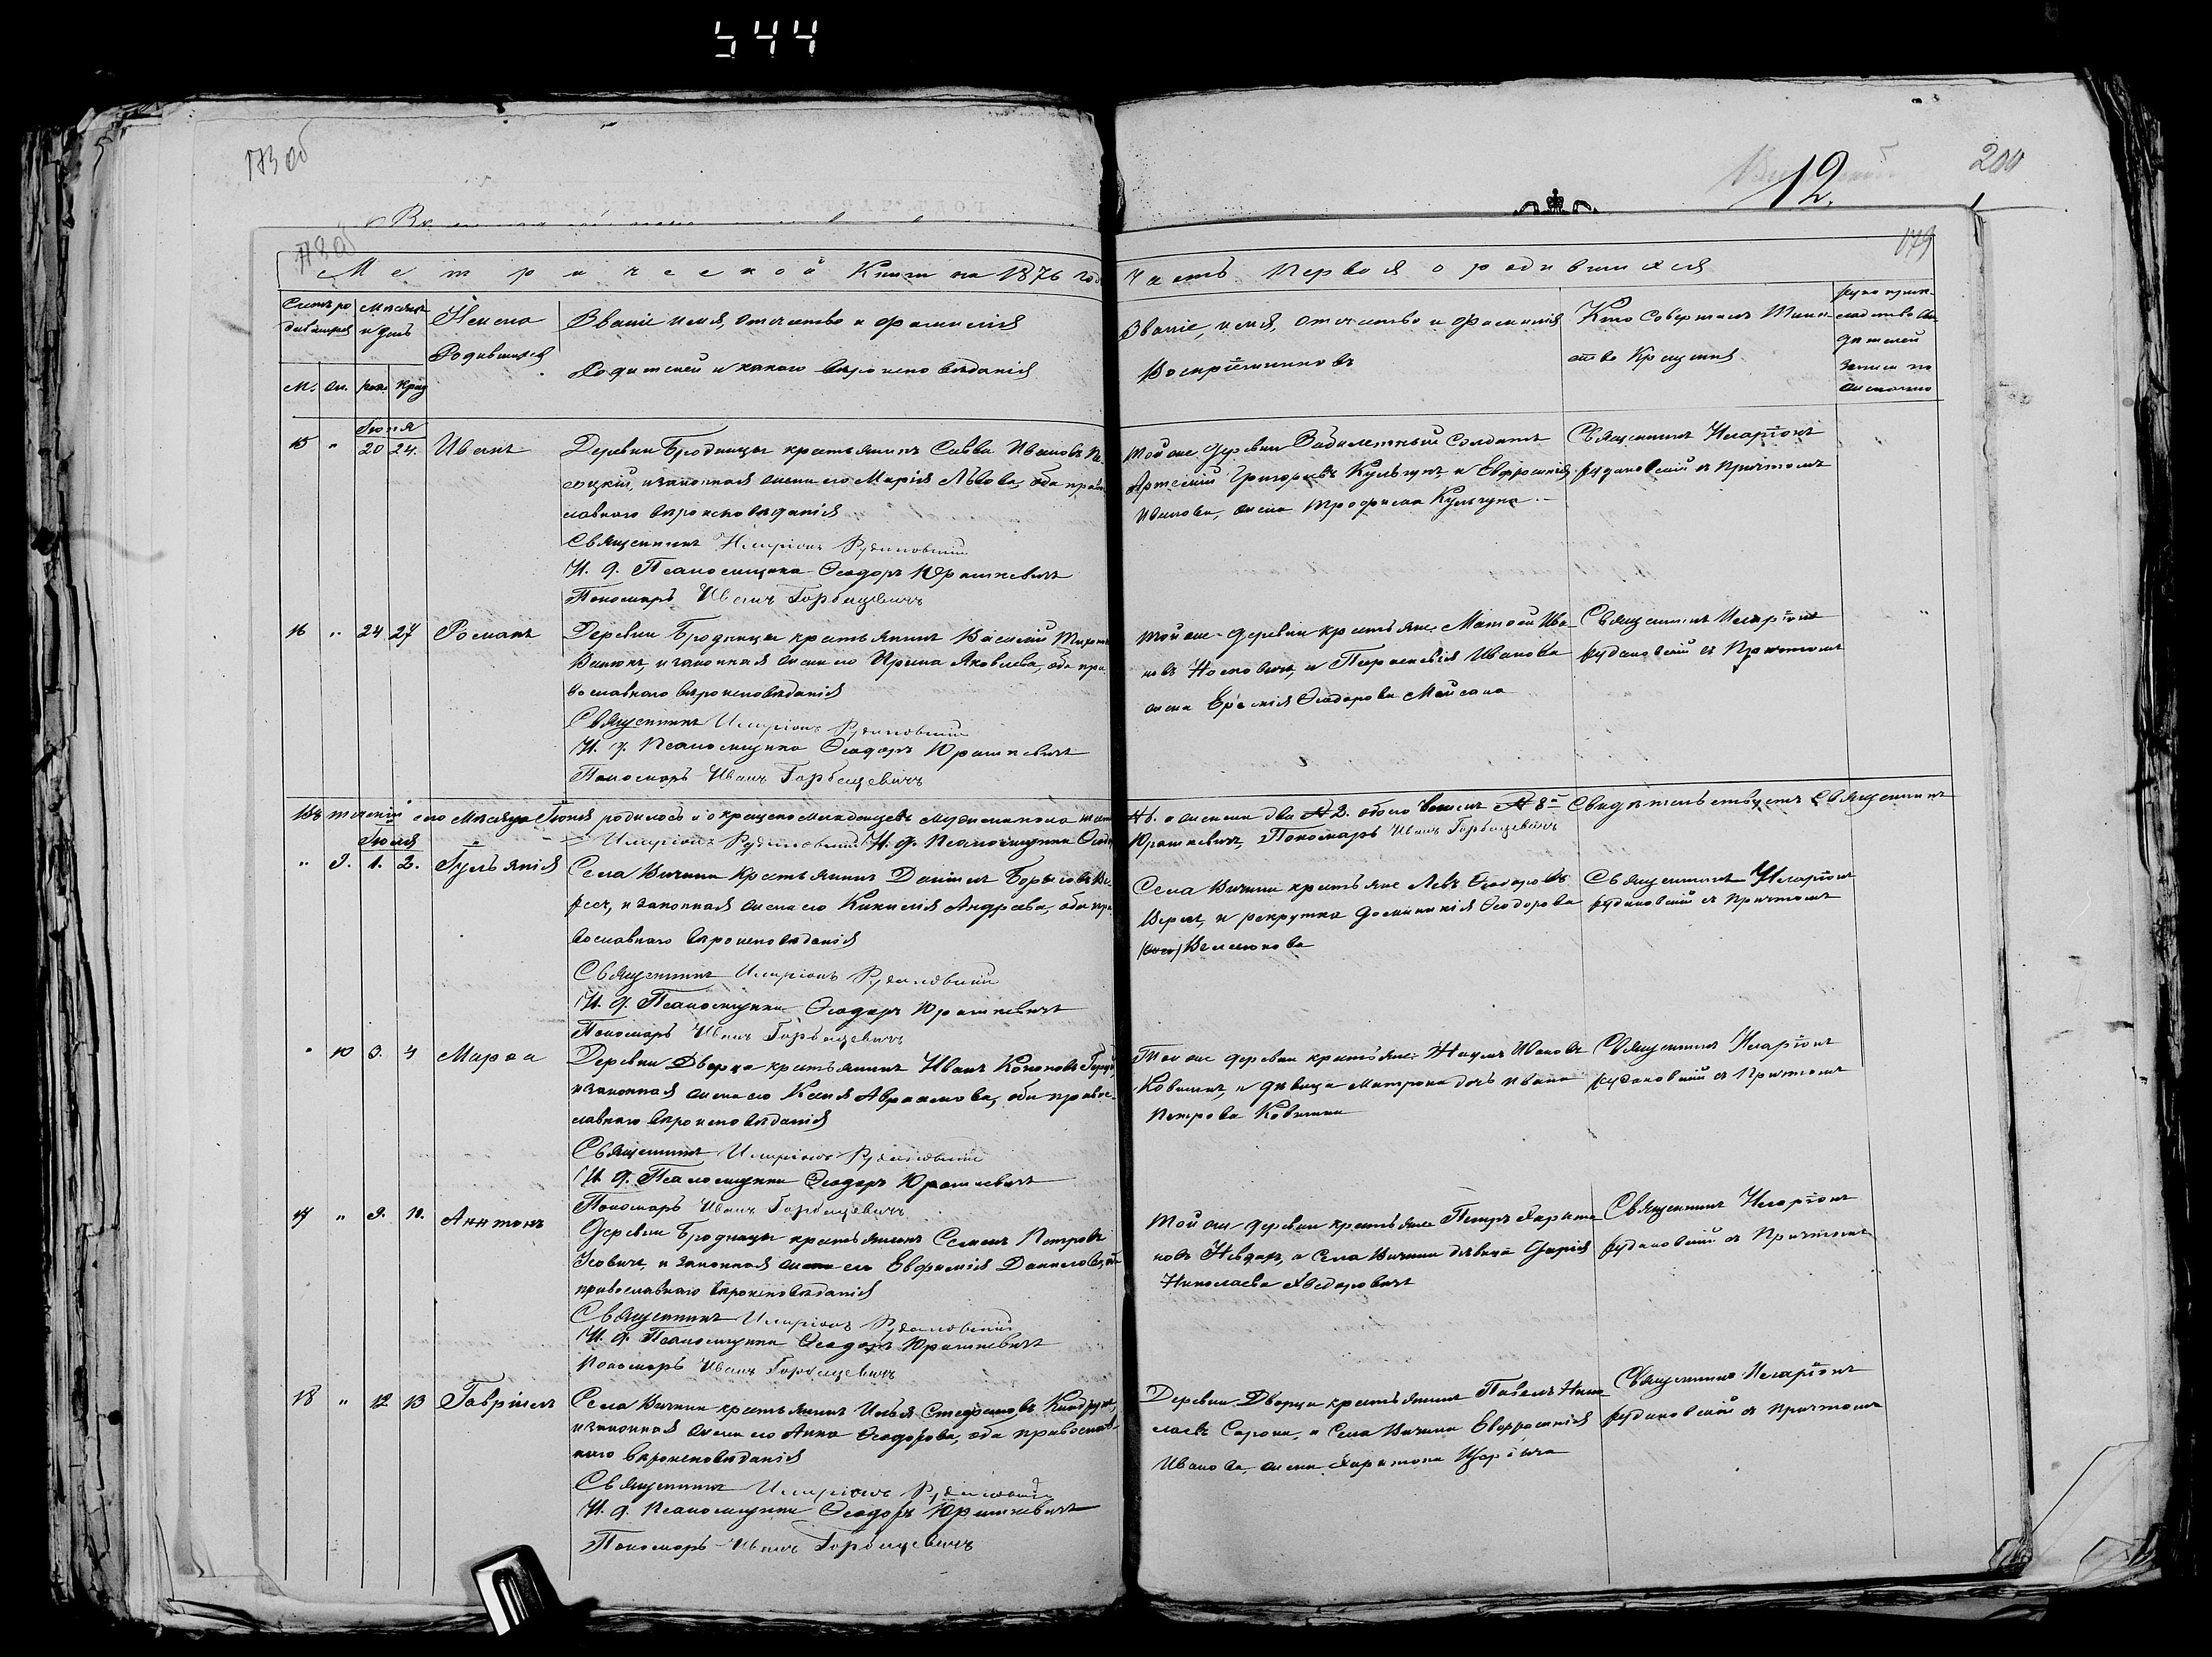 544
173 об
12.
200
178 об
179
Метрической Книги на 1876 год
Часть Первая о родившихся
Счетъ ро
дившихся
Месяцъ
и день
Имена
Родившихся
Званіе имя, отчество и фамилія
Родителей и какого вѣроисповѣданія
Званіе, имя, отчество и фамилія
Воспріемниковъ
Кто Совершалъ Таин
ство Крещенія
м. ж. рож. крещ
Іюня
15 " 20 24. Иванъ
Деревни Бродницы крестьянинъ Савва Ивановъ
и законная жена его Марія Львова, оба право
славнаго вѣроисповѣданія
Священникъ Иларіонъ Рудаковскій
И. д. Псаломщика Ѳеодоръ Юрашкевичъ
Пономарь Иванъ Горбацевичъ
Той же деревни Солдатъ
Артемій Григорьевъ Кульгунъ и Евфросинія
Иванова, жена Трофима Кульгуна
Священникъ Иларіонъ
Рудаковскій съ Причтомъ
16 " 24 27 Романъ
Деревни Бродницы крестьянинъ Василій
и законная жена его Ирина Яковлева, оба пра
вославнаго вѣроисповѣданія
Священникъ Иларіонъ Рудаковскій
И. д. Псаломщика Ѳеодоръ Юрашкевичъ
Пономарь Иванъ Горбацевичъ
Той же деревни крестьяне Матѳей Ива
новъ и Параскевія Иванова
жена Ѳеодорова
Священникъ Иларіонъ
Рудаковскій съ Причтомъ
Въ теченіи сего Месяца Іюня родилось и окрещено младенцевъ мужескаго
№ 6. а женска два № 2. обоего № 8й Свидѣтельствуетъ Священникъ
Иларіонъ Рудаковскій И. д. Псаломщика
Юрашкевичъ, Пономарь Иванъ Горбацевичъ
Іюля
" 9. 1. 2. Іульянія
Села Вичини Крестьянинъ Даніилъ Борисовъ
и законная жена его Андреева, оба пра
вославнаго вѣроисповѣданія
Священникъ Иларіонъ Рудаковскій
И. д. Псаломщика Ѳеодоръ Юрашкевичъ
Пономарь Иванъ Горбацевичъ
Села Вичини крестьяне Левъ Ѳеодоровъ
и рекрутка Ѳеодорова
Священникъ Иларіонъ
Рудаковскій съ Причтомъ
" 10 3. 4 Марѳа
Деревни Дворца крестьянинъ Иванъ Кононовъ
и законная жена его Аврамова, оба право
славнаго вѣроисповѣданія
Священникъ Иларіонъ Рудаковскій
И. д. Псаломщика Ѳеодоръ Юрашкевичъ
Пономарь Иванъ Горбацевичъ
Той же деревни крестьяне Наумъ Ивановъ
и дѣвица Матрона дочь Ивана
Петрова
Священникъ Иларіонъ
Рудаковскій съ Причтомъ
17 " 9. 11. Антонъ
Деревни Бродницы крестьянинъ Семенъ Петровъ
и законная жена его Евфимія Данилова, оба
православнаго вѣроисповѣданія
Священникъ Иларіонъ Рудаковскій
И. д. Псаломщика Ѳеодоръ Юрашкевичъ
Пономарь Иванъ Горбацевичъ
Той же деревни крестьяне Петръ Харито
новъ а Села Вичини дѣвица Дарія
Николаева Хведоровичъ
Священникъ Иларіонъ
Рудаковскій съ Причтомъ
18 " 12 13 Гавріилъ
Села Вичини крестьянинъ Илья Стефановъ
и законная жена его Анна Ѳеодорова, оба православ
наго вѣроисповѣданія
Священникъ Иларіонъ Рудаковскій
И. д. Псаломщика Ѳеодоръ Юрашкевичъ
Пономарь Иванъ Горбацевичъ
Деревни Дворца крестьянинъ Павелъ Нико
лаевъ Сорока, а Села Вичини Евфросинія
Иванова, жена Харитона
Священникъ Иларіонъ
Рудаковскій съ Причтомъ